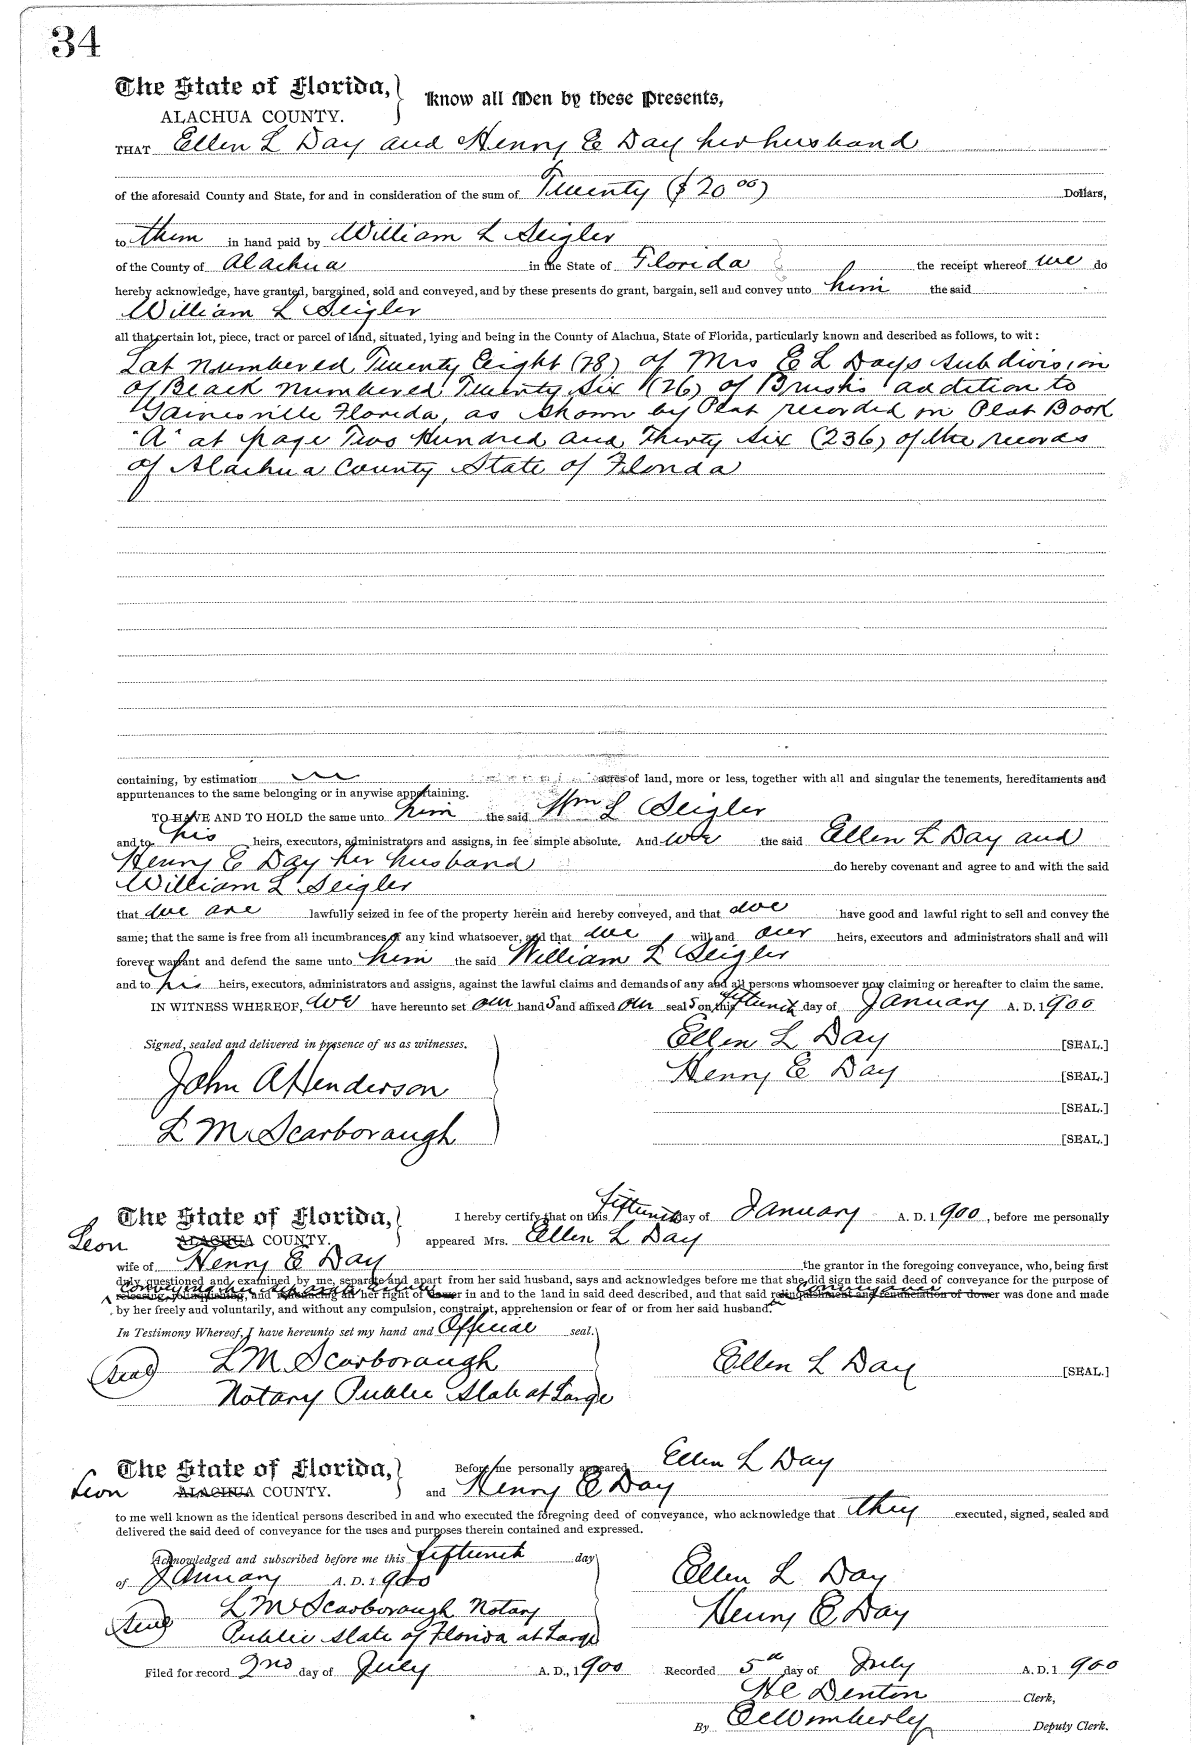 34
The State of Florida,
ALACHUA COUNTY.
Know all Men by these Presents,
THAT Ellen L Day and Henry E Day her husband
of the aforesaid County and State, for and in consideration of the sum of Twenty ($20 00) Dollars,
to them in hand paid by William L Seigler
of the County of Alachua in the State of Florida the receipt whereof we do
hereby acknowledge, have granted, bargained, sold and conveyed, and by these presents do grant, bargain, sell and convey unto him the said
William L Seigler
all that certain lot, piece, tract or parcel of land, situated, lying and being in the County of Alachua, State of Florida, particularly known and described as follows, to wit:
Lot numbered Twenty Eight (28) of Mrs E L Days subdivision
of Block numbered Twenty Six (26) of Brushs addition to
Gainesville Florida, as shown by Plat recorded in Plat Book
"A" at page Two Hundred and Thirty Six (236) of the records
of Alachua County State of Florida
containing, by estimation acres of land, more or less, together with all and singular the tenements, hereditaments and
appurtenances to the same belonging or in anywise appertaining.
TO HAVE AND TO HOLD the same unto him the said Wm L Seigler
and to his heirs, executors, administrators and assigns, in fee simple absolute. And we the said Ellen L Day and
Henry E Day her husband do hereby covenant and agree to and with the said
William L Seigler
that we are lawfully seized in fee of the property herein and hereby conveyed, and that we have good and lawful right to sell and convey the
same; that the same is free from all incumbrances of any kind whatsoever, and that we will and our heirs, executors and administrators shall and will
forever warrant and defend the same unto him the said William L Seigler
and to his heirs, executors, administrators and assigns, against the lawful claims and demands of any and all persons whomsoever now claiming or hereafter to claim the same.
IN WITNESS WHEREOF, we have hereunto set our hands and affixed our seals on this fifteenth day of January A. D. 1900
Signed, sealed and delivered in presence of us as witnesses.
Ellen L Day [SEAL.]
Henry E Day [SEAL.]
John A Henderson
[SEAL.]
L M Scarborough
[SEAL.]
The State of Florida,
Leon ALACHUA COUNTY.
I hereby certify that on this fifteenth day of January A. D. 1900, before me personally
appeared Mrs. Ellen L Day
wife of Henry E Day the grantor in the foregoing conveyance, who, being first
duly questioned and examined by me, separate and apart from her said husband, says and acknowledges before me that she did sign the said deed of conveyance for the purpose of
conveying her separate conveyance
releasing, relinquishing, and her right of dower in and to the land in said deed described, and that said relinquishment and renunciation of dower was done and made
by her freely and voluntarily, and without any compulsion, constraint, apprehension or fear of or from her said husband.
In Testimony Whereof, I have hereunto set my hand and Official seal.
(Seal) L M Scarborough
Notary Public State at Large
Ellen L Day [SEAL.]
The State of Florida,
Leon ALACHUA COUNTY.
Before me personally appeared Ellen L Day
and Henry E Day
to me well known as the identical persons described in and who executed the foregoing deed of conveyance, who acknowledge that they executed, signed, sealed and
delivered the said deed of conveyance for the uses and purposes therein contained and expressed.
Acknowledged and subscribed before me this fifteenth day
of January A. D. 1900
(Seal) L M Scarborough Notary
Public State of Florida at Large
Ellen L Day
Henry E Day
Filed for record 2nd day of July A. D., 1900
Recorded 5th day of July A. D. 1900
H C Denton Clerk,
By Wimberly Deputy Clerk.